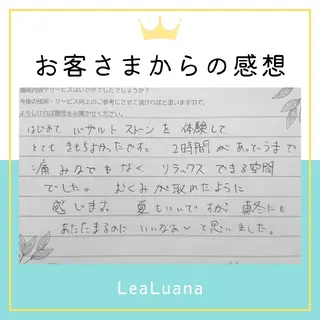 お客さまからの感想
施術内容やサービスはいかがでしたでしょうか?
今後の技術・サービス向上のご参考にさせて頂ければと思いますので、
よろしければ感想をお聞かせください。
はじめて バサルト ストーンを 体験して
とても きもちよかったです。 2時間が あっというまで
痛みなども なく リラックス できる空間
でした。 むくみが 取れたように
感じます。 夏もいいですが 真冬にも
あたたまるのに いいなぁ〜と 思いました。
LeaLuana